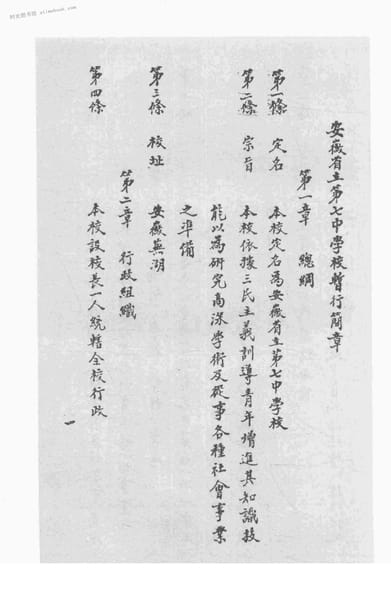 時光圖書館 slimebook.com
安徽省立第七中學校暫行簡章
第一章 總綱
第一條 定名 本校定名為安徽省立第七中學校
第二條 宗旨 本校依據三民主義訓導青年增進其知識技
能以為研究高深學術及從事各種社會事業
之準備
第三條 校址 安徽蕪湖
第二章 行政組織
第四條 本校設校長一人統轄全校行政
一